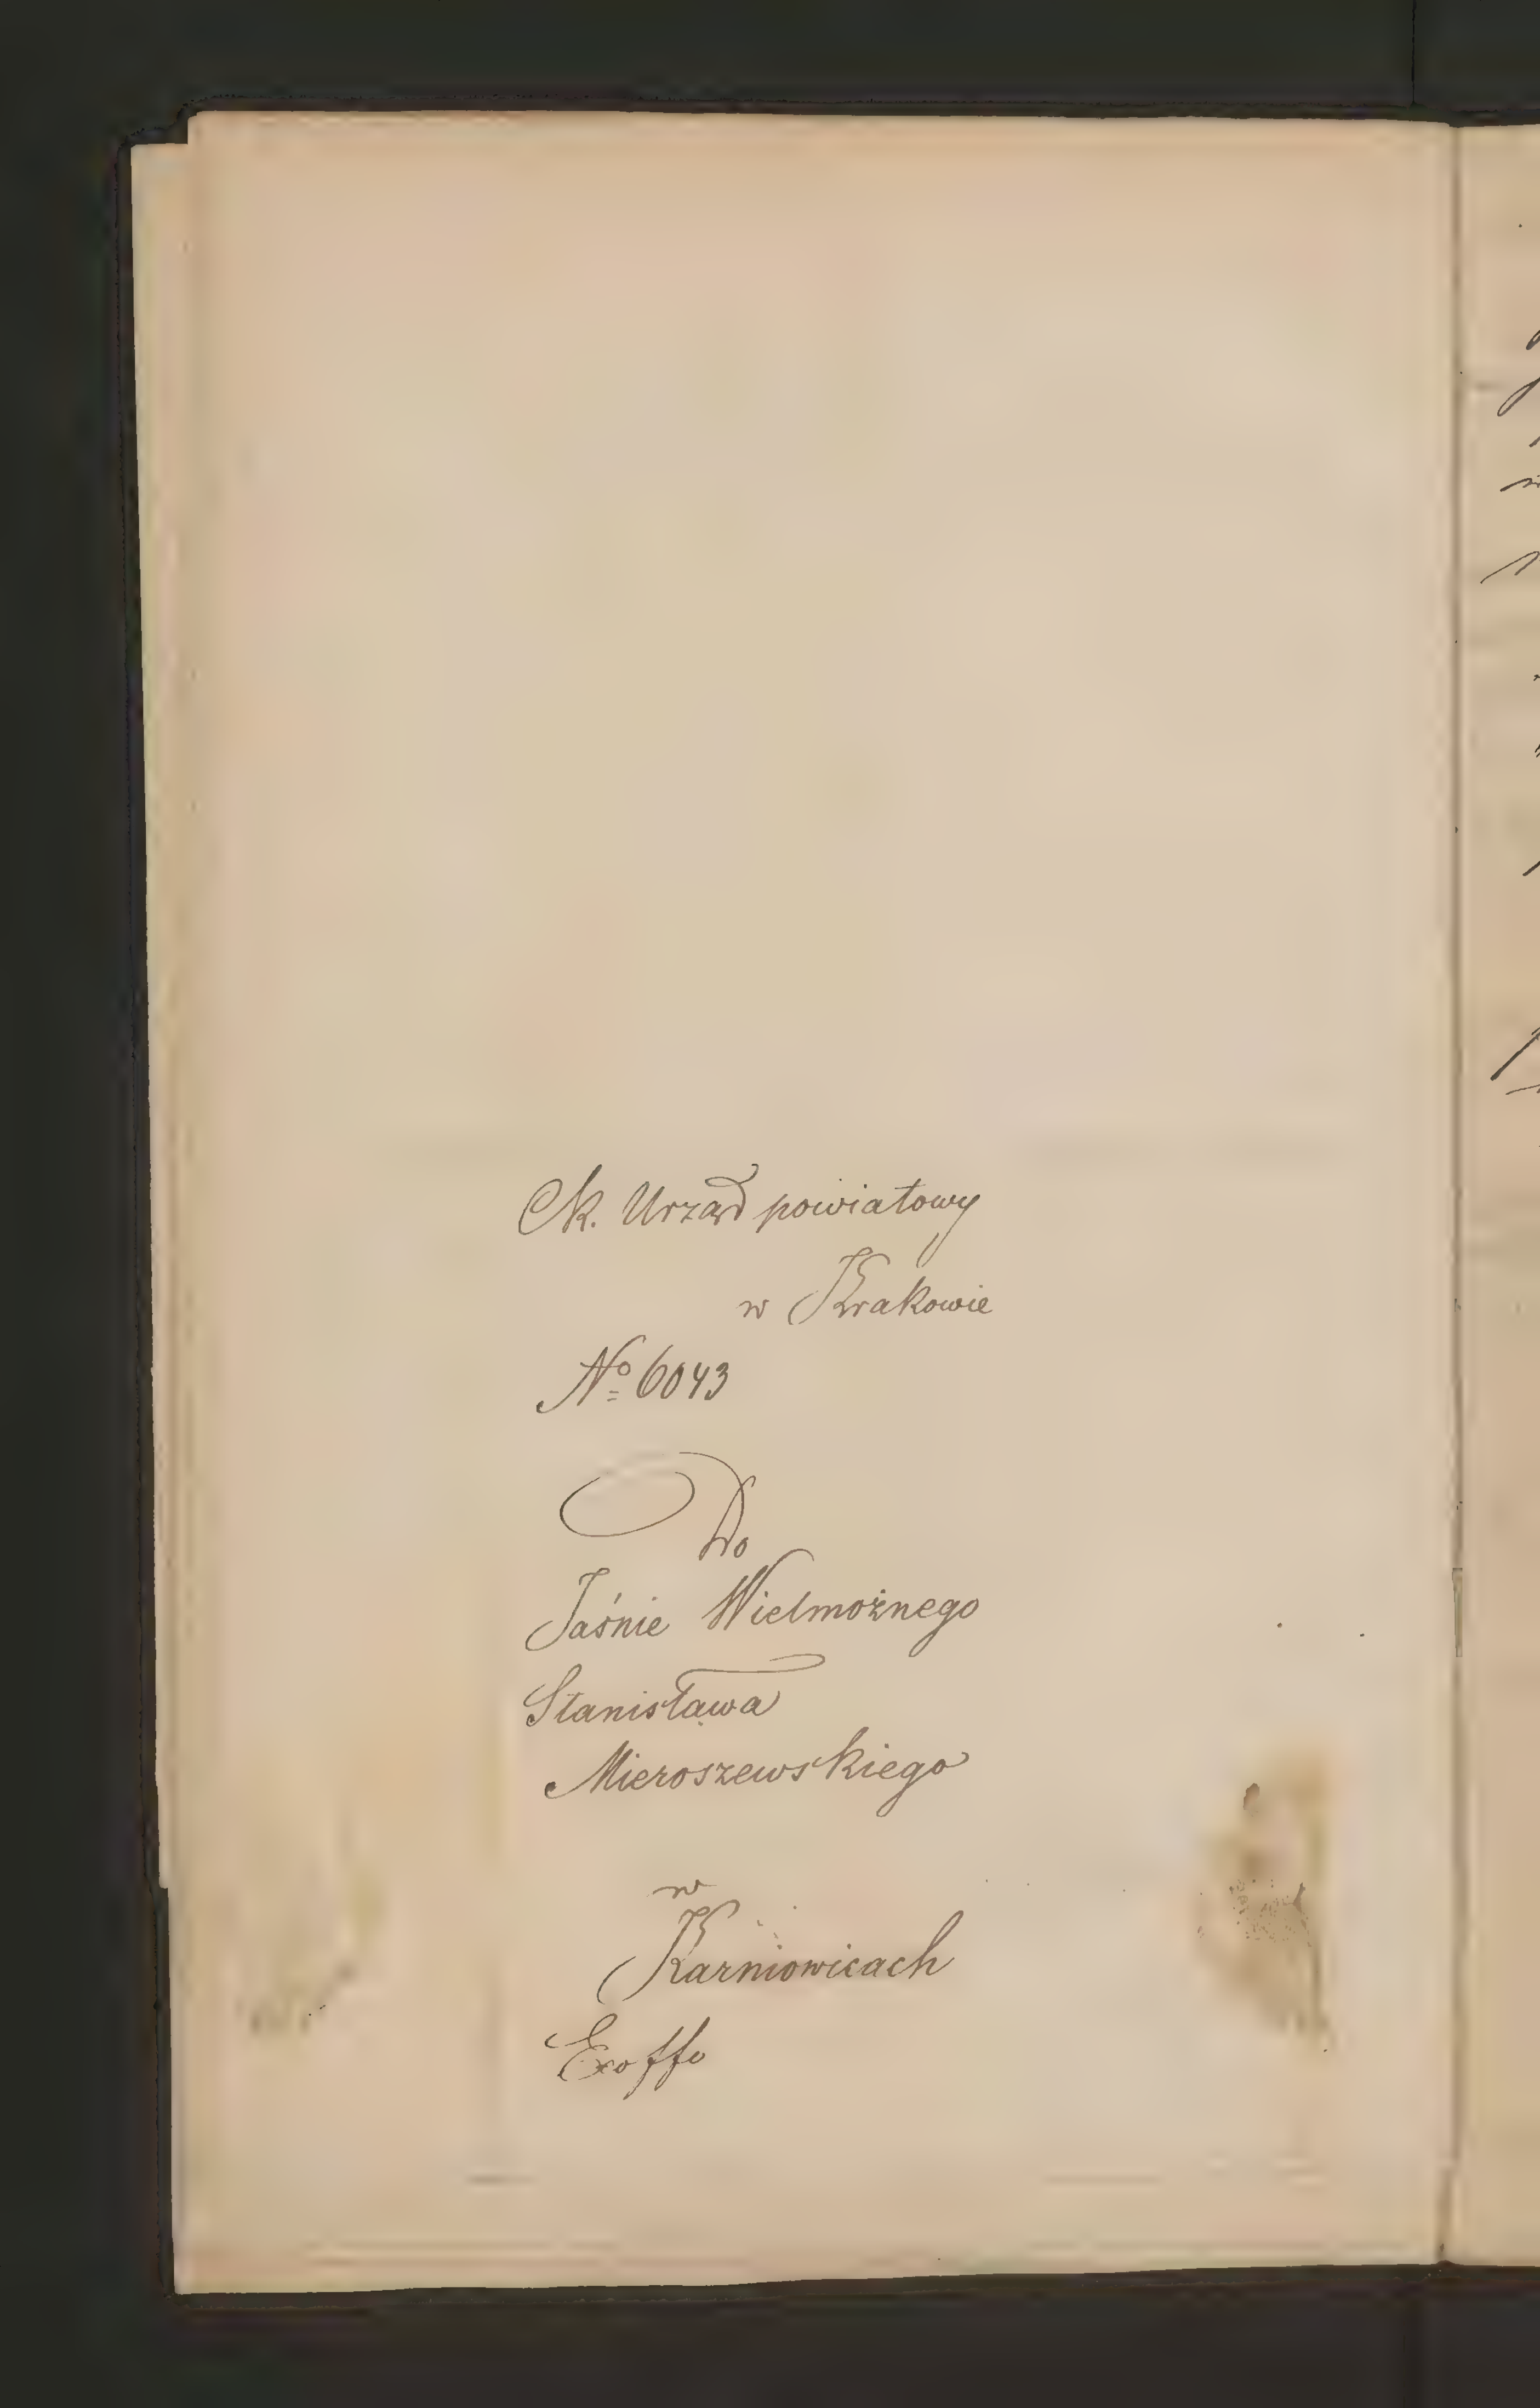 Ck. Urząd powiatowy
w Krakowie
No 6043
Do
Jaśnie Wielmożnego
Stanisława
Mieroszewskiego
w
Karniowicach
Exoffo